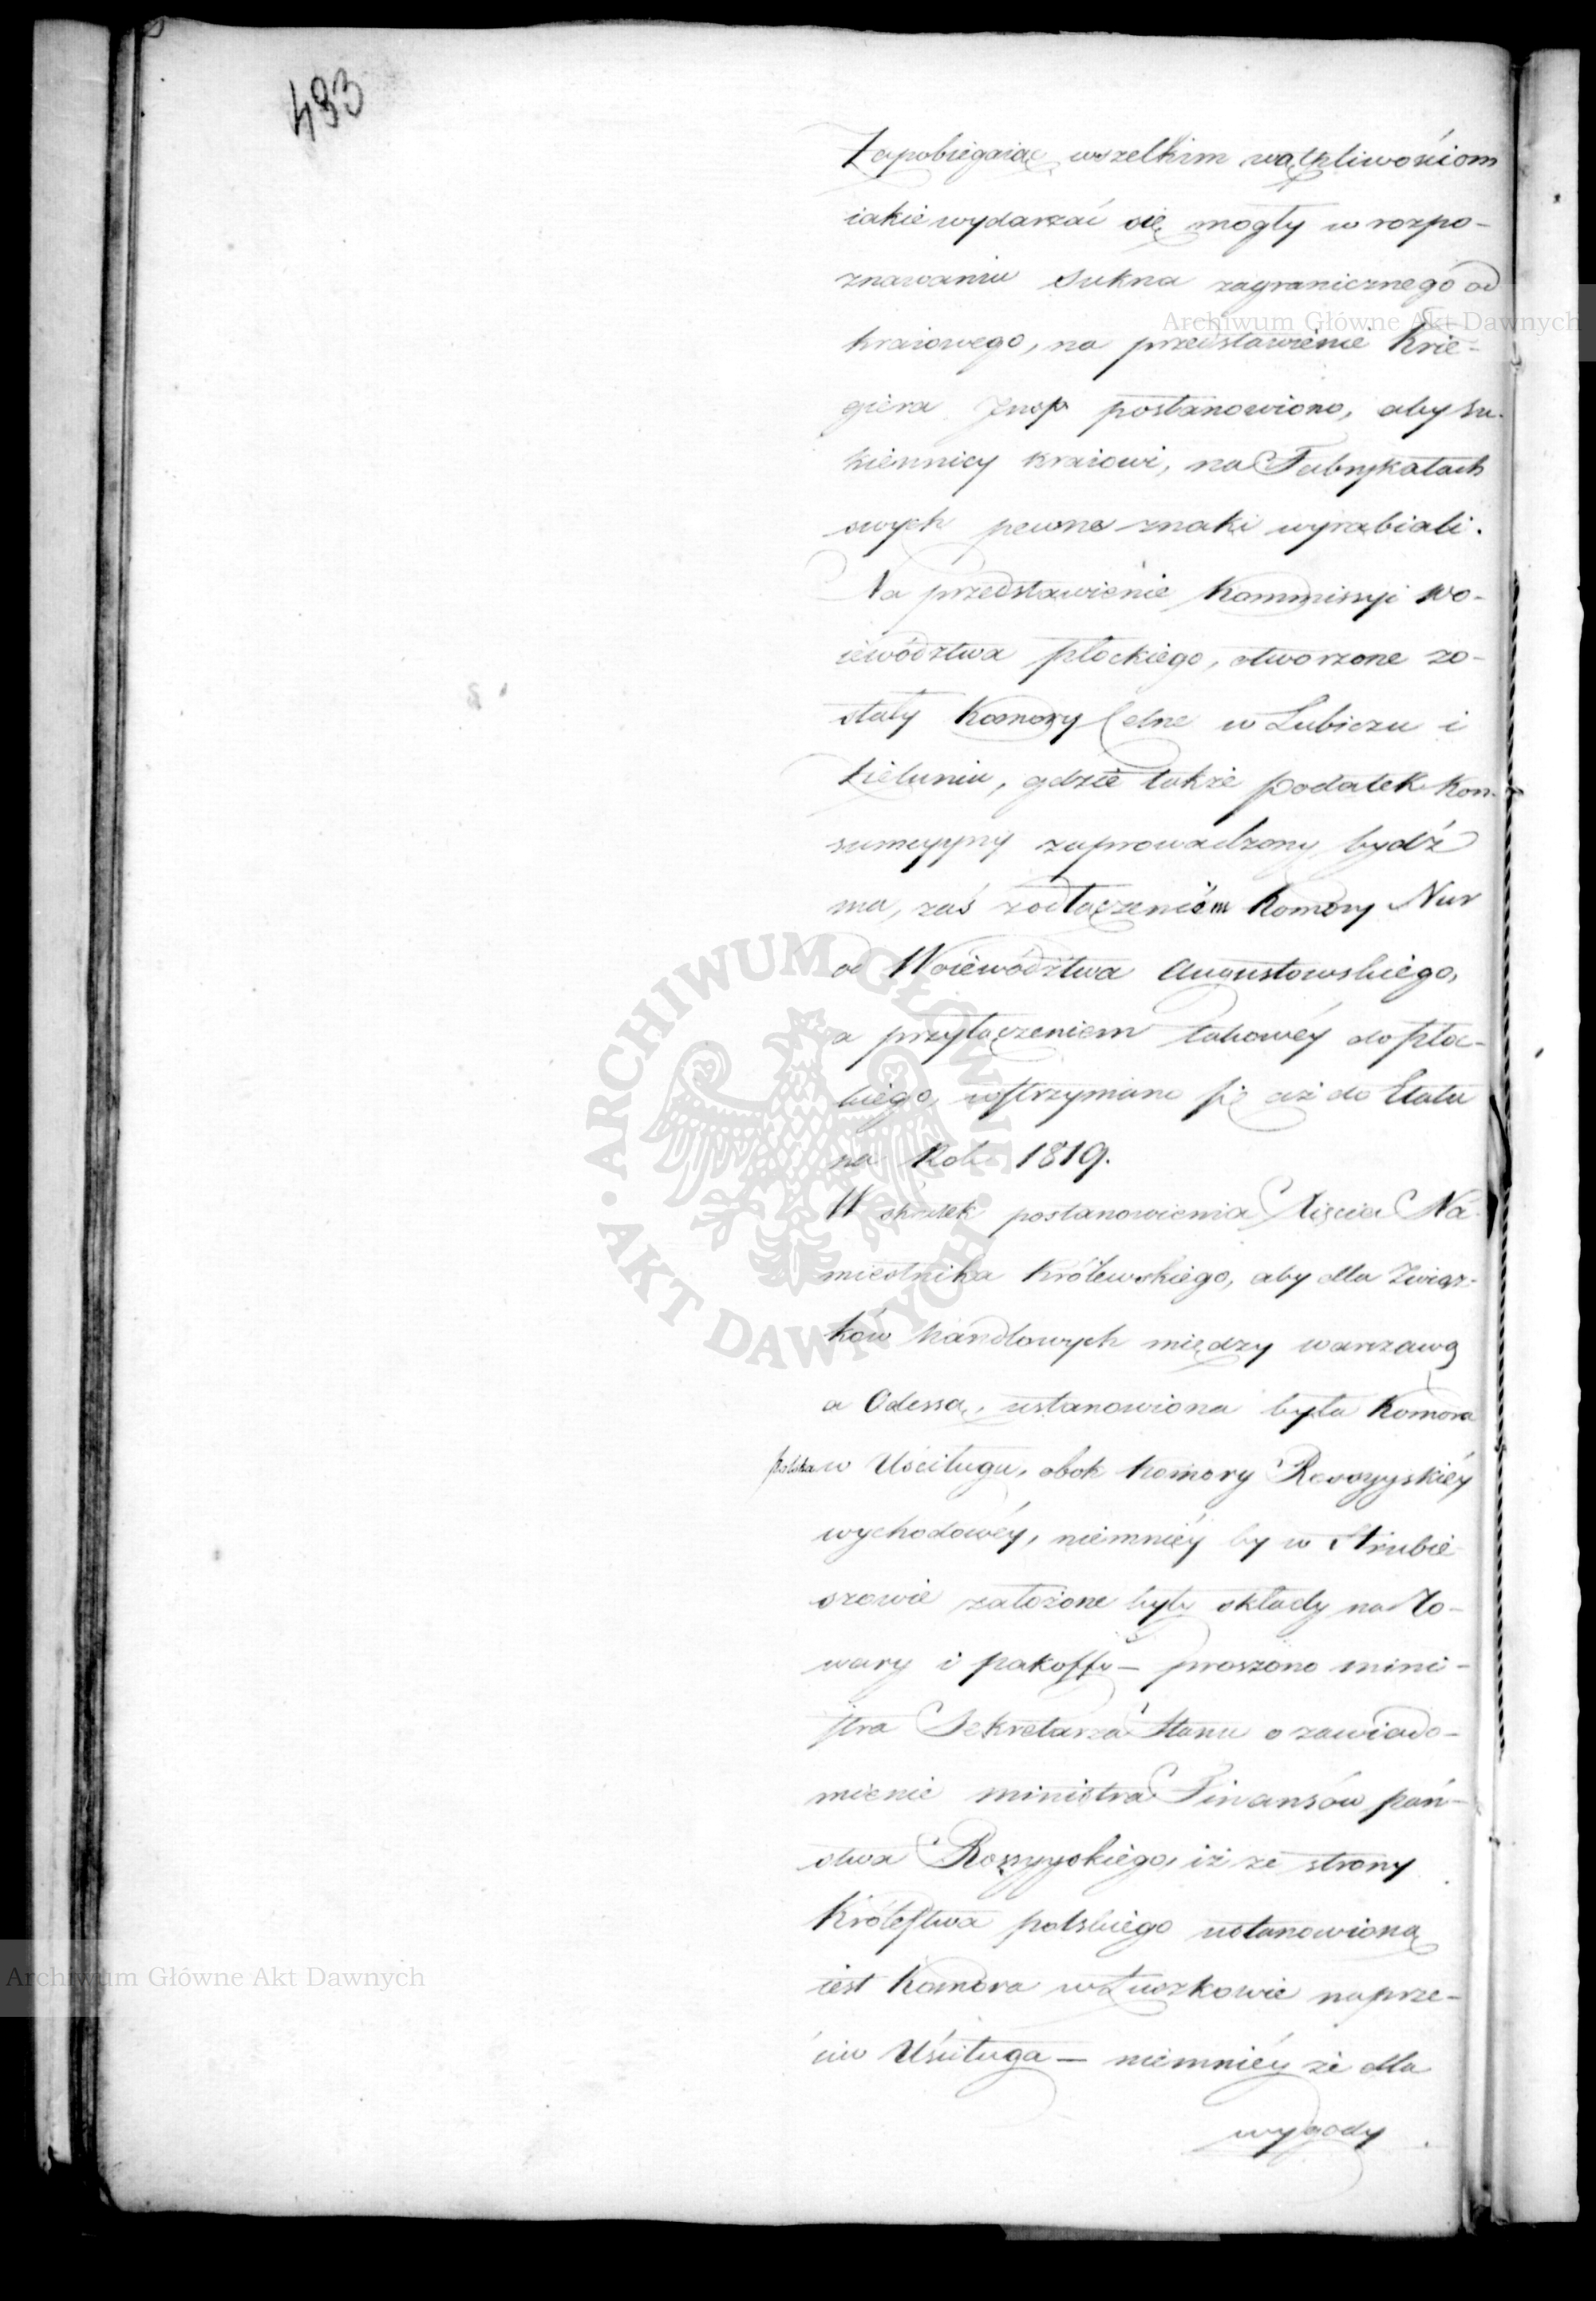 493
Zapobiegaiąc wszelkim wątpliwościom
iakie wydarzać się mogły w rozpo-
znawaniu Sukna zagranicznego od
kraiowego, na przedstawienie Krie-
giera Insp: postanowiono, aby su-
kiennicy kraiowi, na Fabrykatach
swych pewne znaki wyrabiali.
Na przedstawienie Kommissyi Wo-
iewództwa płockiego, otworzone zo-
stały Komory Celne w Lubiczu i
Zieluniu, gdzie także podatek Kon-
sumcyyny zaprowadzony bydź
ma, zaś z odłączeniem Komory Nur
od Woiewództwa Augustowskiego,
a przyłączeniem takowéy do płoc-
kiego, wstrzymano się aż do Etatu
na Rok 1819.
W skutek postanowienia Xięcia Na-
miestnika Królewskiego, aby dla Związ-
ków handlowych między Warszawą
a Odessą, ustanowiona była Komora
Polska w Uściługu, obok komory Rossyyskiéy
wychodowéy, niemniéy by w Hrubie-
szowie założone były składy na To-
wary i pakoffy — proszono mini-
stra Sekretarza Stanu o zawiado-
mienie ministra Finansów pań-
stwa Rossyyskiego, iż ze strony
Królestwa polskiego ustanowioną
iest Komora w Łuszkowie naprze-
ciw Uściługa — niemniéy że dla
wygody
Archiwum Główne Akt Dawnych
ARCHIWUM GŁÓWNE • AKT DAWNYCH •
Archiwum Główne Akt Dawnych